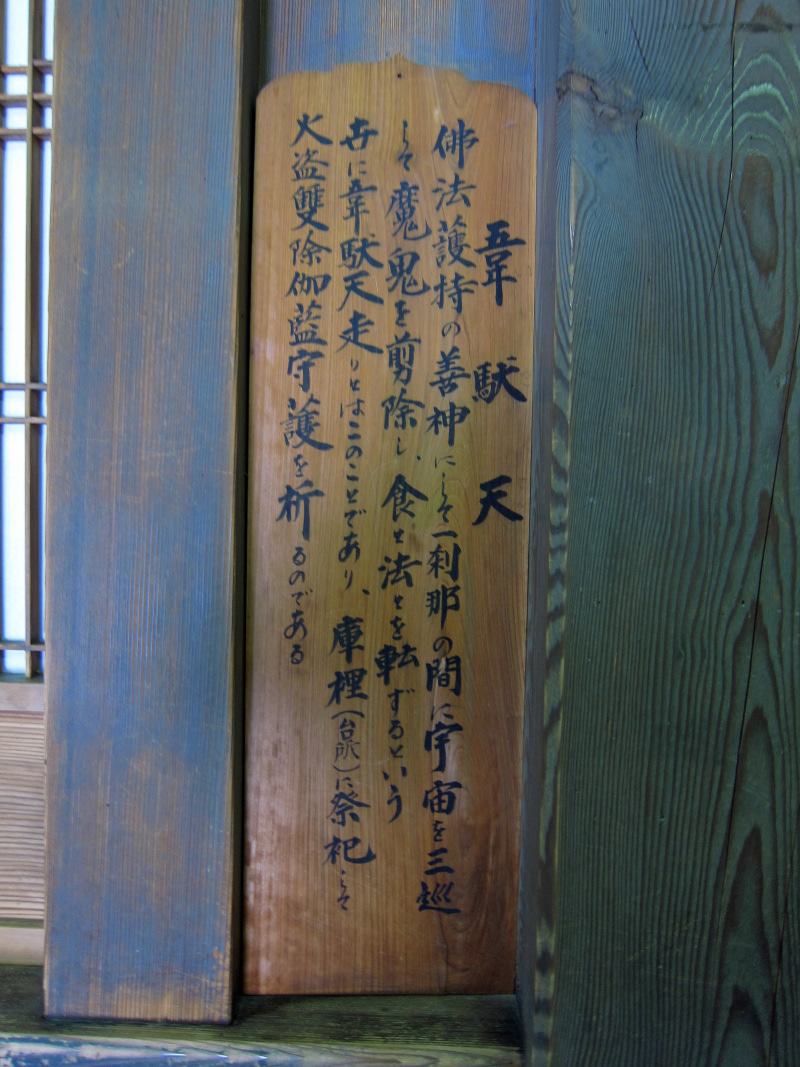 韋駄天
佛法護持の善神にして一刹那の間に宇宙を三巡
して魔鬼を剪除し、食と法とを転ずるという
世に韋駄天走りとはこのことであり、庫裡(台所)に祭祀して
火盗雙除伽藍守護を祈るのである